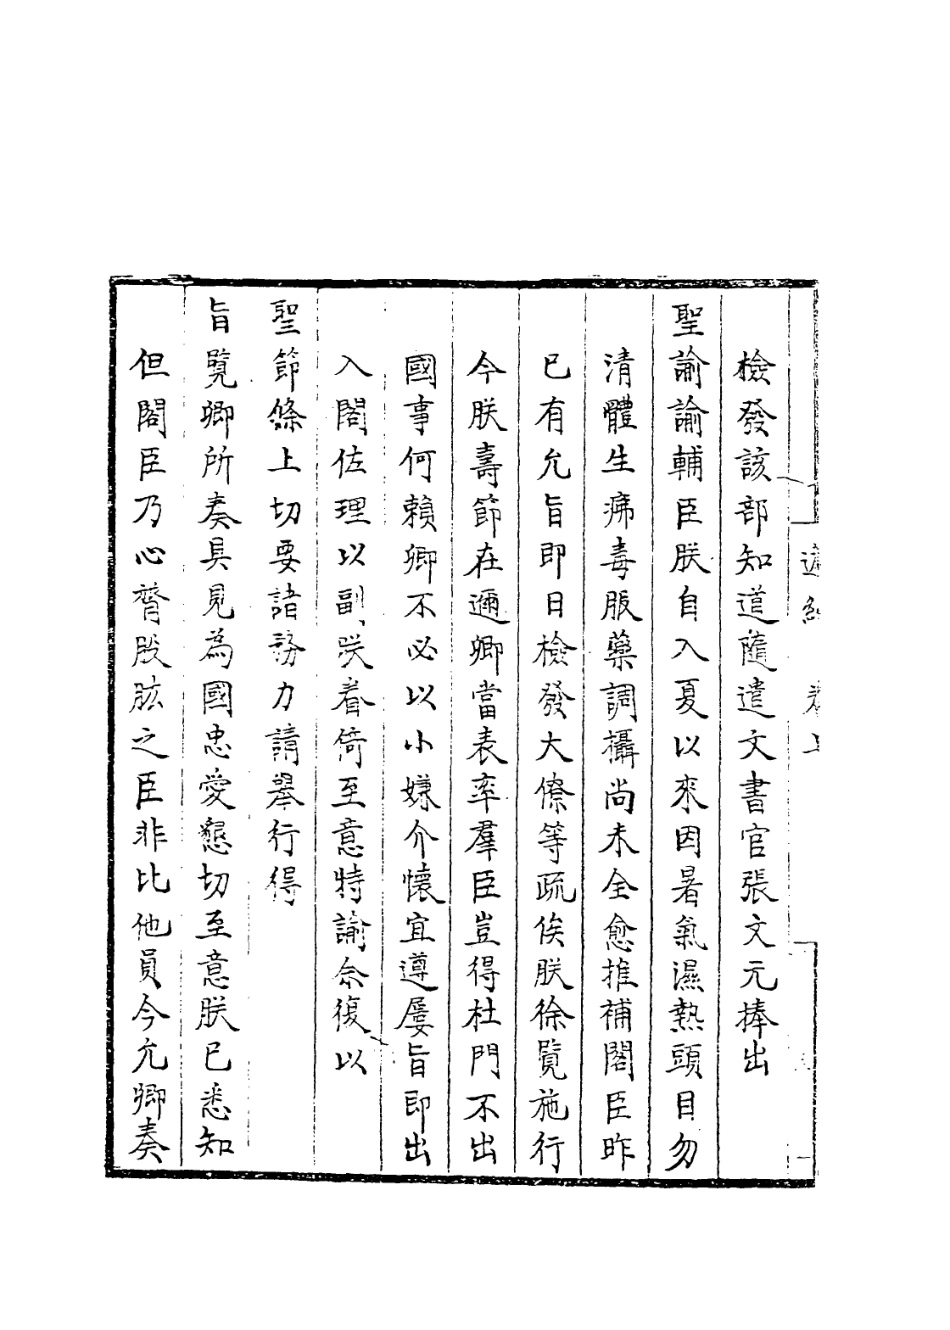 檢發該部知道隨遣文書官張文元捧出
聖諭諭輔臣朕自入夏以來因暑氣濕熱頭目勿
清體生疿毒服藥調攝尚未全愈推補閣臣昨
已有允旨即日檢發大僚等疏俟朕徐覽施行
今朕壽節在邇卿當表率羣臣豈得杜門不出
國事何賴卿不必以小嫌介懷宜遵屢旨即出
入閣佐理以副朕眷倚至意特諭余復以
聖節條上切要諸務力請舉行得
旨覽卿所奏具見為國忠愛懇切至意朕已悉知
但閣臣乃心膂股肱之臣非比他員今允卿奏